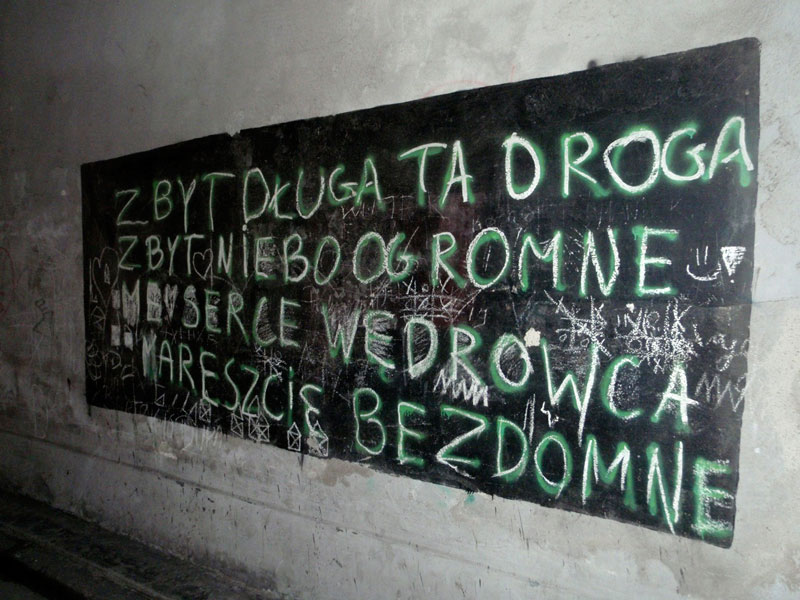 ZBYT DŁUGA TA DROGA
ZBYT NIEBO OGROMNE
BY SERCE WĘDROWCA
WARESZCIE BEZDOMNE